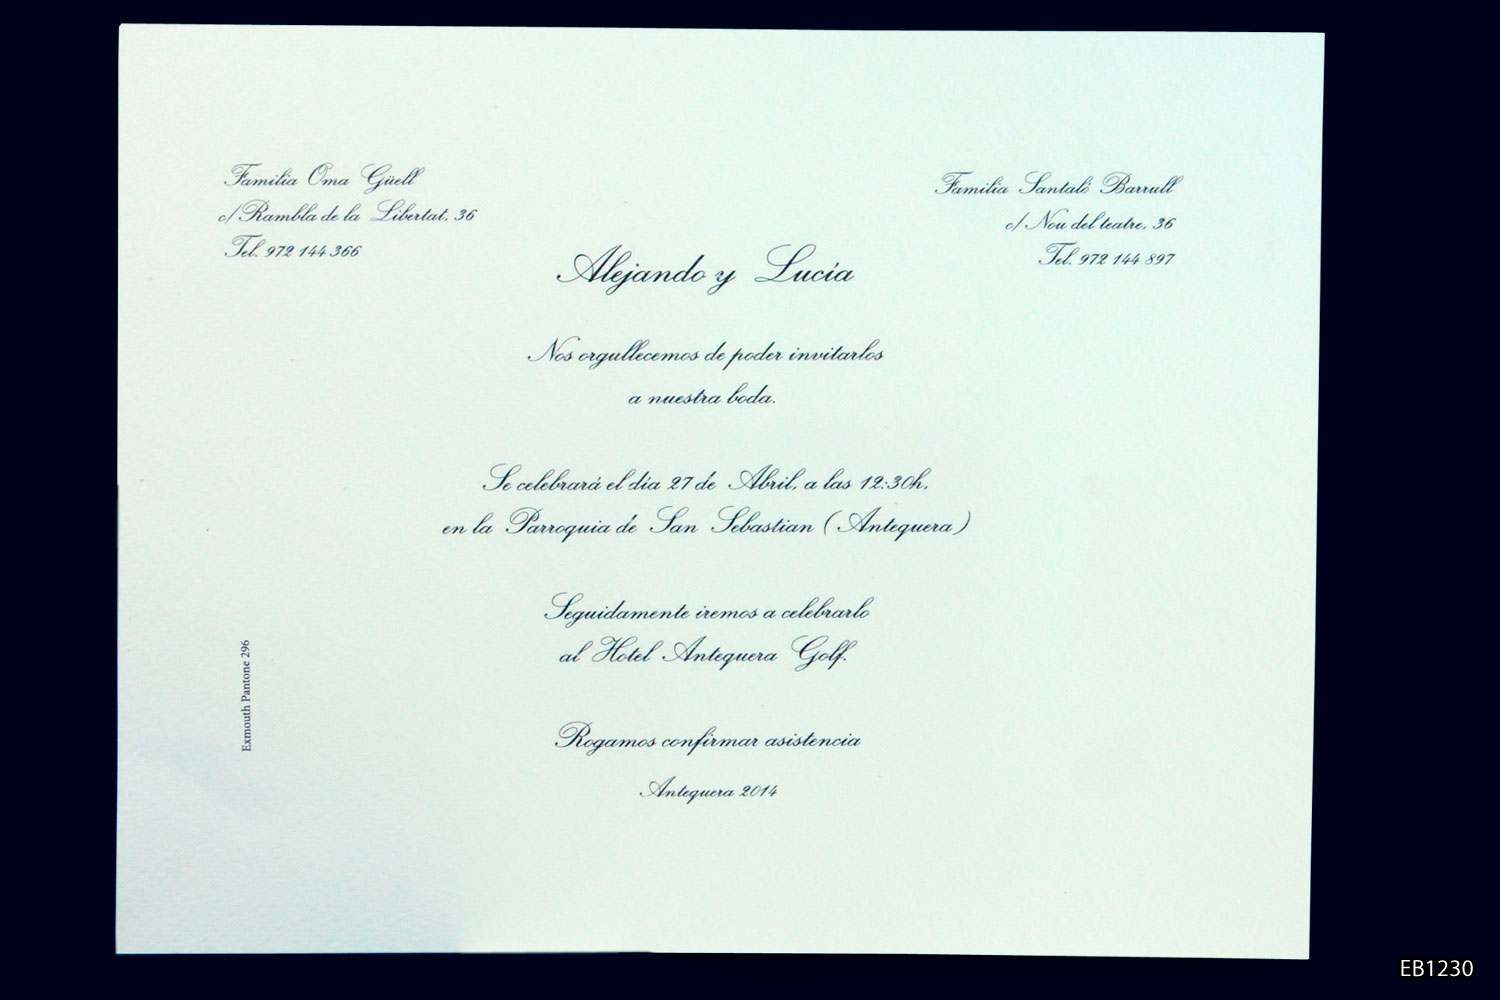 Familia Oma Güell
c/ Rambla de la Libertat, 36
Tel. 972 144 366
Familia Santaló Barrull
c/ Nou del teatre, 36
Tel. 972 144 897
Alejando y Lucía
Nos orgullecemos de poder invitarlos
a nuestra boda.
Se celebrará el día 27 de Abril, a las 12:30h,
en la Parroquia de San Sebastian (Antequera)
Seguidamente iremos a celebrarlo
al Hotel Antequera Golf.
Rogamos confirmar asistencia
Antequera 2014
Exmouth Pantone 296
EB1230